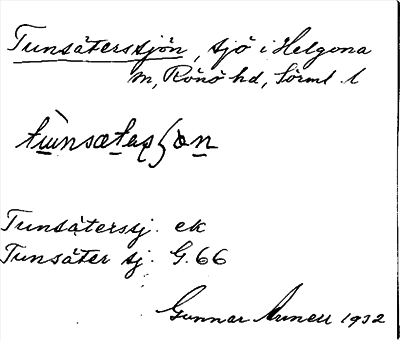 Tunsäterssjön, sjö i Helgona
m, Rönö hd, Sörml. l

Tunsäterssj. ek
Tunsäter sj. G. 66
Gunnar Arnell 1932